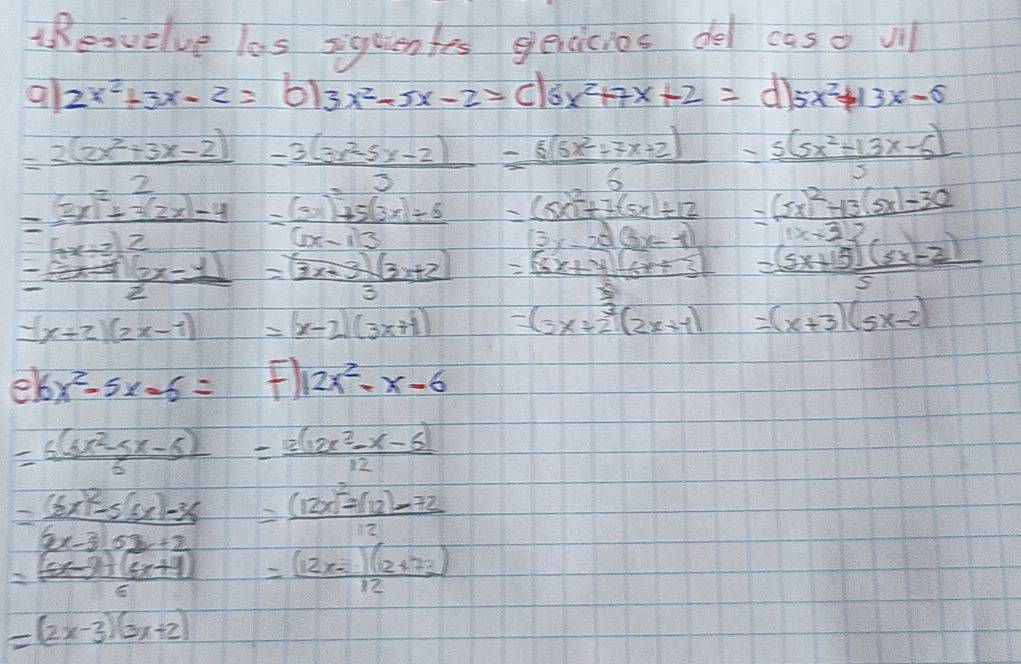 Resuelve los siguientes gercicios del caso VII
a) 2x²+3x-2= b) 3x²-5x-2= c) 6x²+7x+2= d) 5x²+13x-6
=2(2x²+3x-2)/2 =3(3x²-5x-2)/3 =6(6x²+7x+2)/6 =5(5x²+13x-6)/5
=(2x)²+3(2x)-4/2 =(3x)²+5(3x)-6/3 =(6x)²+7(6x)+12 =(5x)²+13(5x)-30
(x+3)
=(2x-1)/2 =(3x-3)(3x+2)/3 =(6x+4)(6x+3) =(5x+15)(5x-2)/5
=(x+2)(2x-1) =(x-2)(3x+1) =(3x+2)(2x+1) =(x+3)(5x-2)
e) 6x²-5x-6= F) 12x²-x-6
=6(6x²-5x-6)/6 =(12x²-x-6)/12
=(6x)²-5(6x)-36 =(12x)²-(12)-72/12
(2x-3)
=(6x-9)+(6x+4)/6 =(12x)(12+72)/12
=(2x-3)(3x+2)